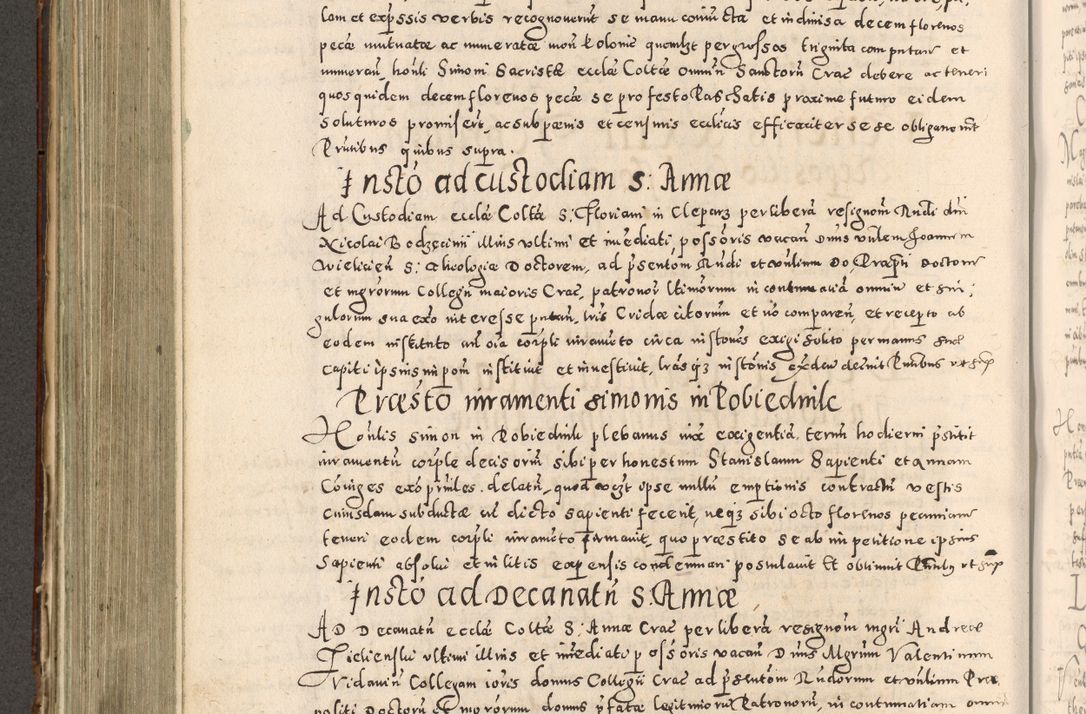 lam et expssis verbis recognoverūt se manu coniūcta et indivisa decem florenos
pecæ mutuatæ ac numeratæ mon Polonic quemlzt per grossos triginta computan et
numeran, honli Simoni Sacristæ ecclæ Coltæ omniū Sanctorū Crac debere ac teneri
quos quidem decem florenos pecæ se pro festo Paschatis proxime futuro eidem
soluturos promiserūt, ac sub pænis et censuris ecclicis efficaciter sese obligarunt
Pntibus quibus supra.
Insto ad custodiam S: Annæ
Ad Custodiam ecclæ Coltæ S: Floriani in Cleparz per liberā resignom Rndi dni
Nicolai Bodzecini illius ultimi et imēdiati possoris vacan Dnus vnlem Joannem
Wielicien S: Theologiæ Doctorem, ad psentom Rndi et vnlium Do, Præpti Doctorū
et mgrorum Collegii maioris Crac, patronor ltimorum in continuatiā omniū et sin,
gulorum sua exo interesse putan, lris Cridæ citorum et no comparen, et recepto ab
eodem instituto ad oia corpli iuramēto circa instones exigi solito per manus suæ
capiti ipsius impom instituit et investivit, lrās q3 instonis exdem decrevit Pntibus ut sup
Præsto iuramenti Simonis in Pobiednik
Honlis Simon in Pobiednik plebanus iux exigentiā, termi hodierni pstitit
iuramentū corple decisoriū sibi per honestum Stanislaum Sapienti et Annam
Coniges exo pnles delatū, quod videlizt ipse nullū emptionis contractū vestis
cuiusdam subductæ cū dicto Sapienti fecerit, neq3 sibi octo florenos pecuniarū
teneri eodem corpli iuramēto firmavit, quo præstito se ab impetitione ipsius
Sapienti absolui et in litis expensis condemnari postulavit Et obtinuit Pntibus ut sup
Insto ad Decanatū S. Annæ
Ad Decanatū ecclæ Coltæ S: Annæ Crac per liberā resignom mgri Andreæ
ultimi illius et imēdiati possoris vacan Dnus Mgrum Valentinum
Vidavin Collegam ioris domus Collegii Crac ad psentom Rndorum et vnlium Præ
positi Doctorū et mgrorum domus pfatæ legitimorū Patronorū, in continuatiam omniū